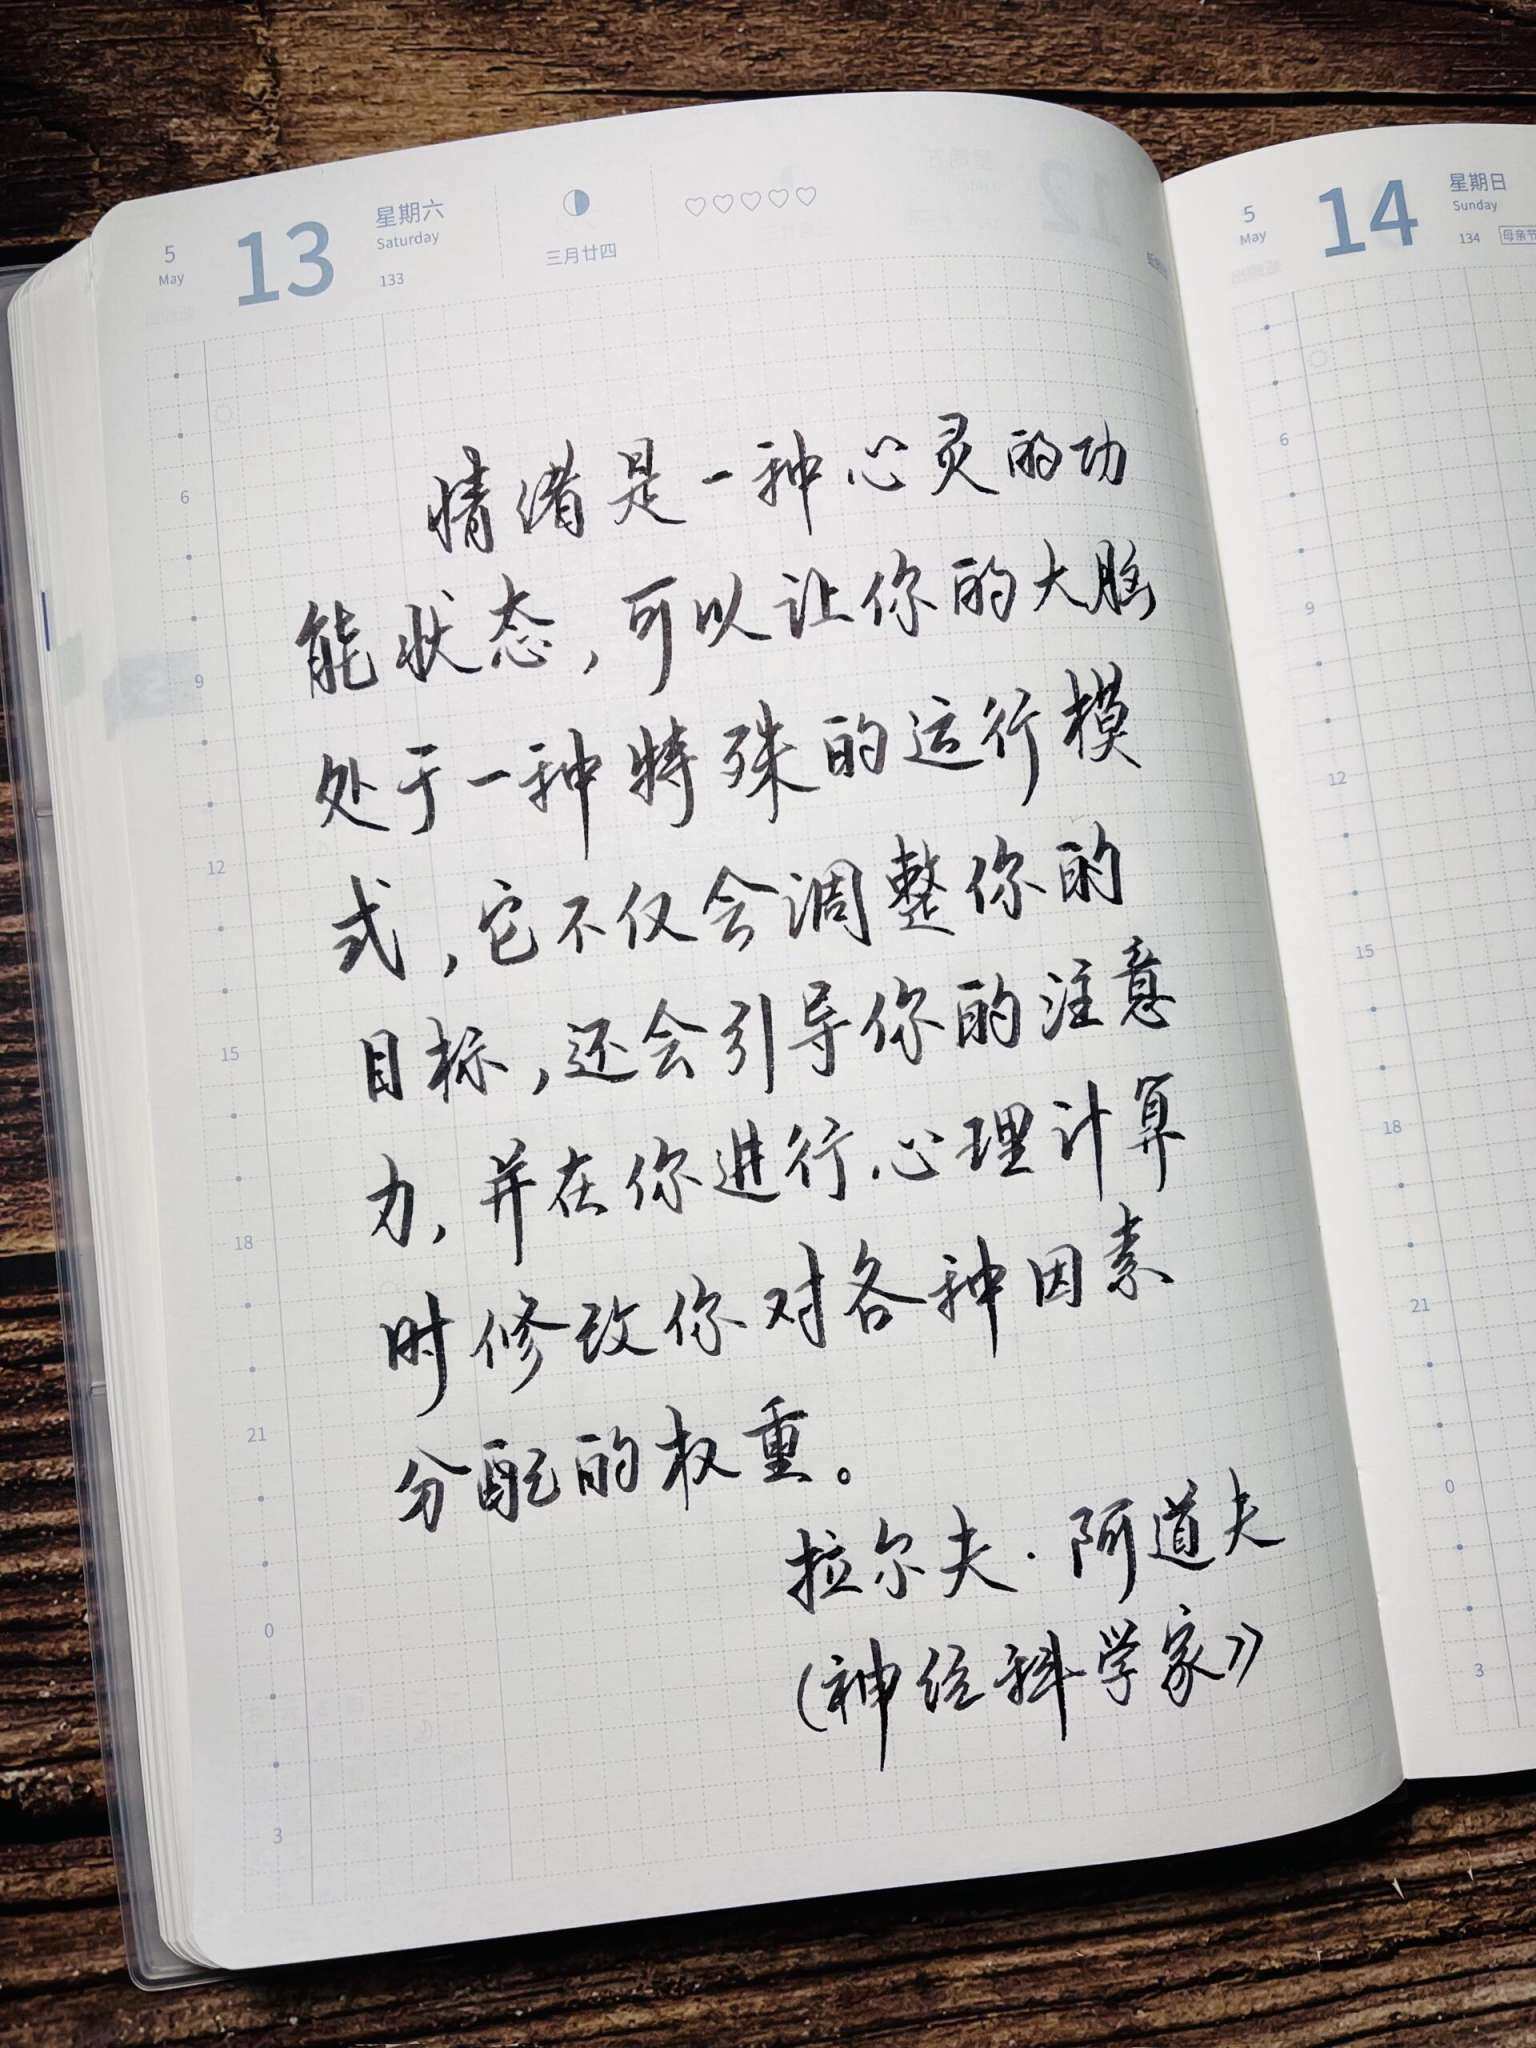 5
May
13
星期六
Saturday
133
三月廿四
6
9
12
15
18
21
0
3
情绪是一种心灵的功
能状态,可以让你的大脑
处于一种特殊的运行模
式,它不仅会调整你的
目标,还会引导你的注意
力,并在你进行心理计算
时修改你对各种因素
分配的权重。
拉尔夫·阿道夫
(神经科学家》
5
May
14
星期日
Sunday
134
母亲节
6
9
12
15
18
21
0
3